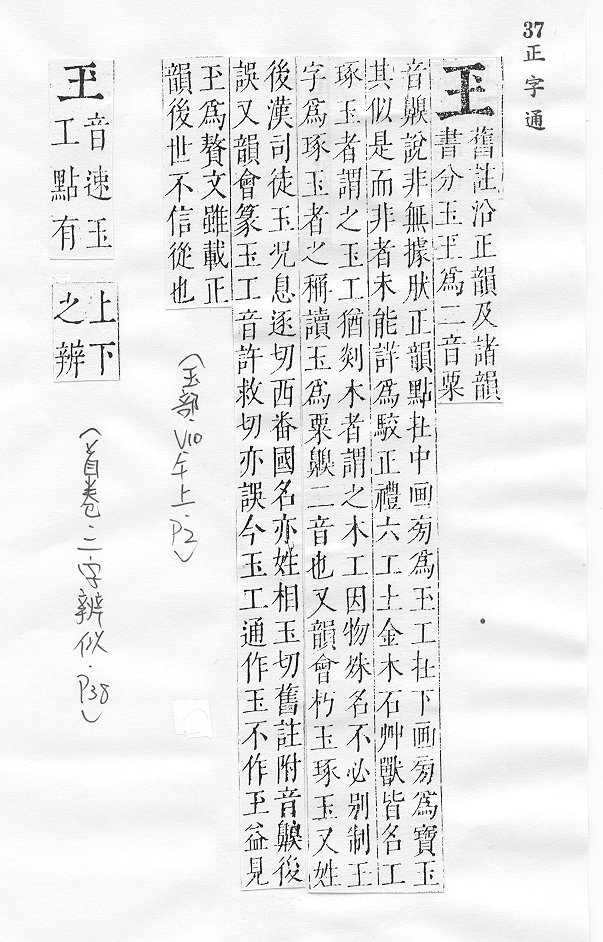 37
正字通
𤣩
舊註沿正韻及諸韻
書分玉𤣩爲二音粟
音齅說非無據肰正韻點在中画旁爲𤣩工在下画旁爲寶玉
其似是而非者未能詳爲駮正禮六工土金木石艸獸皆名工
琢玉者謂之玉工猶剡木者謂之木工因物殊名不必別制𤣩
字爲琢玉者之稱讀玉爲粟齅二音也又韻會朽玉琢玉又姓
後漢司徒玉況息逐切西番國名亦姓相玉切舊註附音齅後
誤又韻會篆玉工音許救切亦誤今玉工通作玉不作𤣩益見
𤣩爲贅文雖載正
韻後世不信從也
(玉部.V10午上.P2)
𤣩
音速玉
工點有
上下
之辨
(首卷.二字辨似.P38)